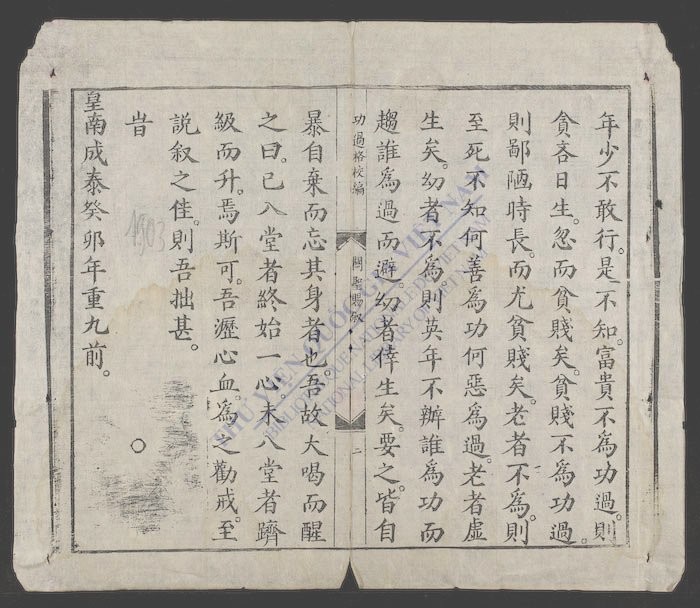 年少不敢行。是不知。富貴不為功過。則
貪吝日生。忽而貧賤矣。貧賤不為功過。
則鄙陋時長。而尤貧賤矣。老者不為。則
至死不知何善為功何惡為過。老者虛
生矣。幼者不為。則英年不辦誰為功而
趨誰為過而避。幼者倖生矣。要之皆自
功過格校編
關聖賜敘
二
暴自棄而忘其身者也。吾故大喝而醒
之曰。已入堂者終始一心未入堂者躋
級而升。焉斯可。吾瀝心血。為之勸戒。至
說叙之佳。則吾拙甚。
旹
皇南成泰癸卯年重九前。
1903
THƯ VIỆN QUỐC GIA VIỆT NAM
BIBLIOTHEQUE NATIONALE DU VIETNAM
NATIONAL LIBRARY OF VIETNAM